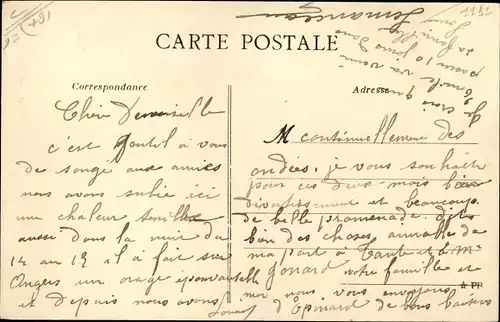 CARTE POSTALE
Correspondance
Adresse
Chère Demoiselle
c'est Gentil à vous
de songé aux amies
nous avons subie ici
une chaleur
aussi dans la nuit du
14 au 15 il a fait sur
Angers un orage épouvantable
et depuis nous avons
M continuellement des
ondées, je vous souhaite
pour ces deux mois bien
divertissement et beaucoup
de belle promenade. dites
bien des choses, aimable de
ma part à et à Mr
Gonard votre famille et
moi nous vous envoyons
d'Epinard de bons baisers
Je crois que
Emile va venir
passer 10 jours dans
sa famille